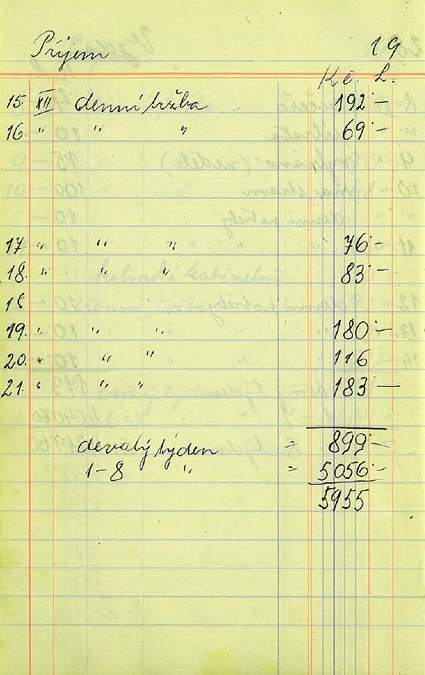 Príjem 19
Kč. h.
15. XII denní tržba 192·—
16. " " " 69·—
17. " " " 76·—
18. " " " 83·—
18
19. " " " 180·—
20. " " " 116
21. " " " 183·—
devatý týden = 899·—
1-8 " = 5056·—
5955